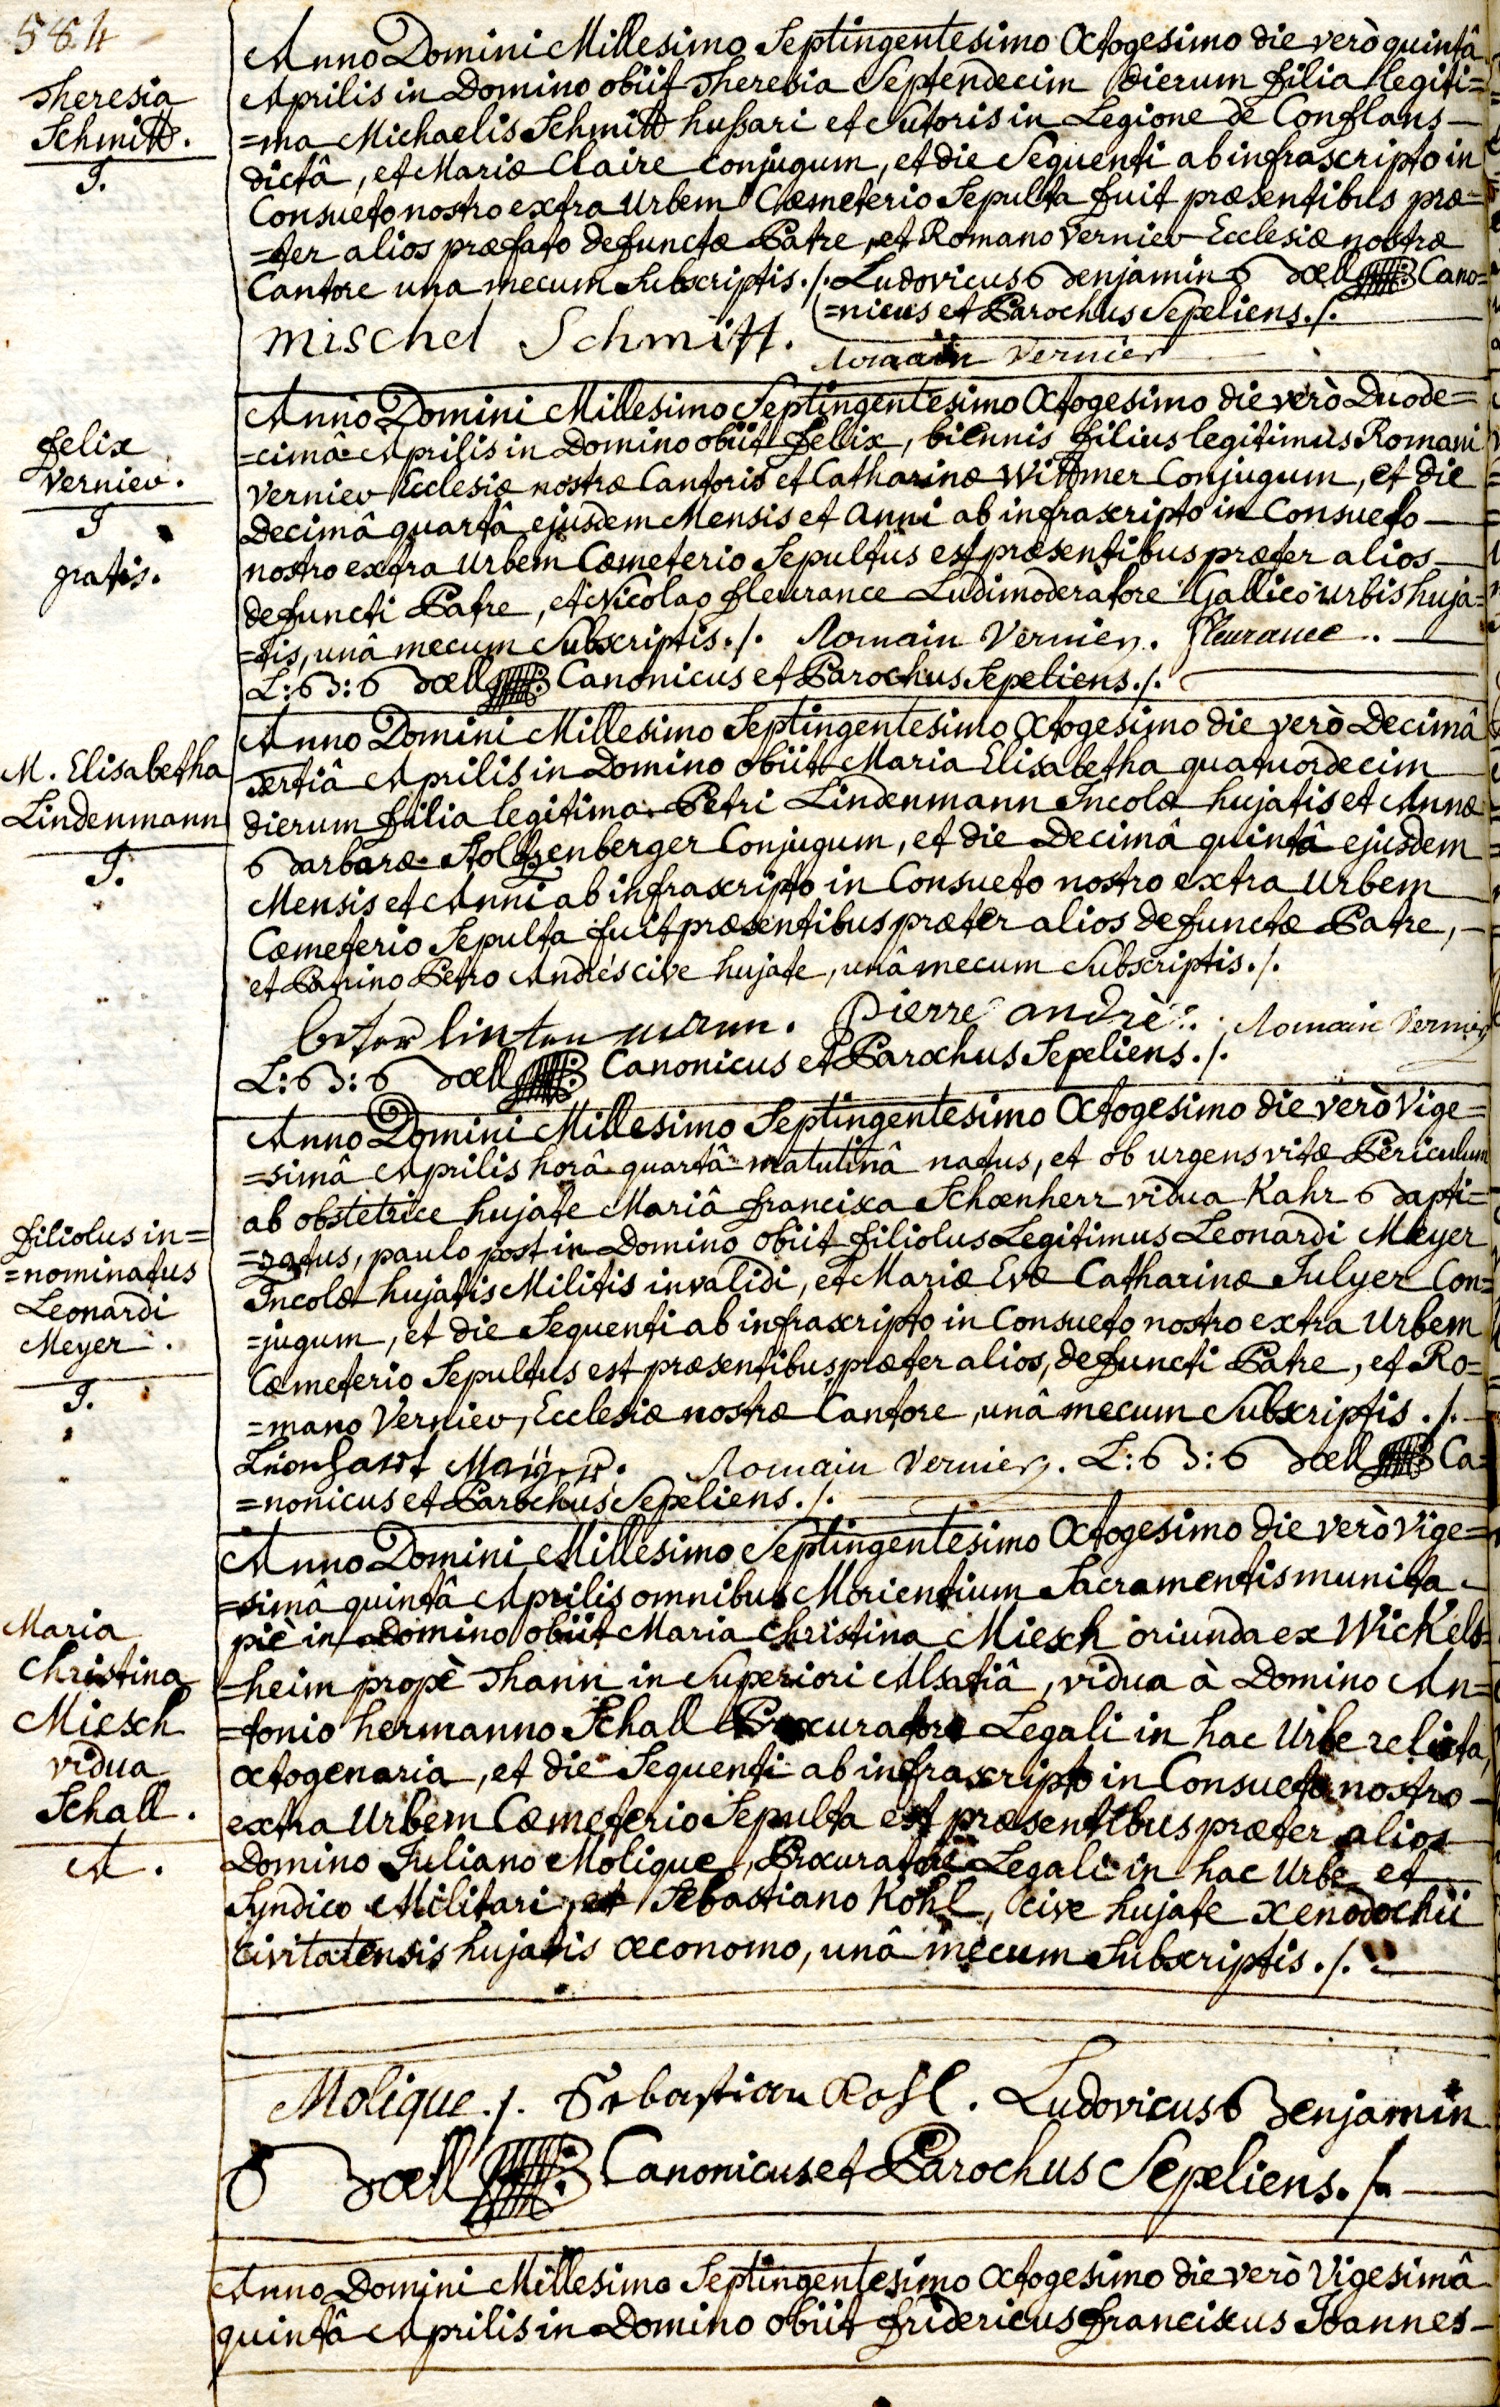 584
Theresia
Schmitt.
I.
Anno Domini Millesimo Septingentesimo Octogesimo die verò quintâ
Aprilis in Domino obiit Theresia Septendecim dierum filia legiti=
=ma Michaelis Schmitt hussari et Sutoris in Legione de Conflans
dictâ, et Mariæ Claire conjugum, et die Sequenti ab infrascripto in
Consueto nostro extra Urbem Cœmeterio Sepulta fuit præsentibus præ=
=ter alios præfato defunctæ Patre, et Romano Vernier Ecclesiæ nostræ
Cantore una mecum Subscriptis./. Ludovicus Benjamin Boell Cano=
=nicus et Parochus Sepeliens./.
Mischel Schmitt.
Romain Vernier
felix
Vernier.
I
gratis.
Anno Domini Millesimo Septingentesimo Octogesimo die verò Duode=
=cimâ Aprilis in Domino obiit felix, biennis filius legitimus Romani
Vernier Ecclesiæ nostræ Cantoris et Catharinæ Wittmer Conjugum, et die
Decimâ quartâ ejusdem Mensis et Anni ab infrascripto in Consueto
nostro extra Urbem Cœmeterio Sepultus est præsentibus præter alios
defuncti Patre, et Nicolao fleurance Ludimoderatore Gallico urbis huja=
=tis, unâ mecum Subscriptis./. Romain Vernier. fleurance.
L: B: Boell Canonicus et Parochus Sepeliens./.
M. Elisabetha
Lindenmann
I.
Anno Domini Millesimo Septingentesimo Octogesimo die verò Decimâ
tertiâ Aprilis in Domino obiit Maria Elisabetha quatuordecim
dierum filia legitima Petri Lindenmann Incolæ hujatis et Annæ
Barbaræ Stoltzenberger Conjugum, et die Decimâ quintâ ejusdem
Mensis et Anni ab infrascripto in Consueto nostro extra Urbem
Cœmeterio Sepulta fuit præsentibus præter alios defunctæ Patre,
et Patrino Petro Andrés cive hujate, unâ mecum Subscriptis./.
beter lintenmann. Pierre andrè. Romain Vernier
L: B: Boell Canonicus et Parochus Sepeliens./.
filiolus in=
=nominatus
Leonardi
Meyer.
I.
Anno Domini Millesimo Septingentesimo Octogesimo die verò Vige=
=simâ Aprilis horâ quartâ matutinâ natus, et ob urgens vitæ Periculum
ab obstetrice hujate Mariâ francisca Schœnherr vidua Kahr Bapti=
=zatus, paulo post in Domino obiit filiolus Legitimus Leonardi Meyer
Incolæ hujatis Militis invalidi, et Mariæ Evæ Catharinæ Julyer Con=
=jugum, et die Sequenti ab infrascripto in Consueto nostro extra Urbem
Cœmeterio Sepultus est præsentibus præter alios, defuncti Patre, et Ro=
=mano Vernier, Ecclesiæ nostræ Cantore, unâ mecum Subscriptis./.
Leonhart Romain Vernier. L: B: Boell Ca=
=nonicus et Parochus Sepeliens./.
Maria
Christina
Miesch
vidua
Schall.
A.
Anno Domini Millesimo Septingentesimo Octogesimo die verò Vige=
=simâ quintâ Aprilis omnibus Morientium Sacramentis munita
piè in Domino obiit Maria Christina Miesch oriunda ex Wickels=
=heim propè Thann in Superiori Alsatiâ, vidua à Domino An=
=tonio hermanno Schall Procuratore Legali in hac Urbe relicta,
octogenaria, et die Sequenti ab infrascripto in Consueto nostro
extra Urbem Cœmeterio Sepulta est præsentibus præter alios
Domino Juliano Molique, Procuratore Legali in hac Urbe et
Syndico Militari, et Sebastiano Kohl, cive hujate xenodochii
civitatensis hujatis œconomo, unâ mecum Subscriptis./.
Molique./. Sebastian Kohl. Ludovicus Benjamin
Boell Canonicus et Parochus Sepeliens./.
Anno Domini Millesimo Septingentesimo Octogesimo die verò Vigesimâ
quintâ Aprilis in Domino obiit fridericus franciscus Joannes